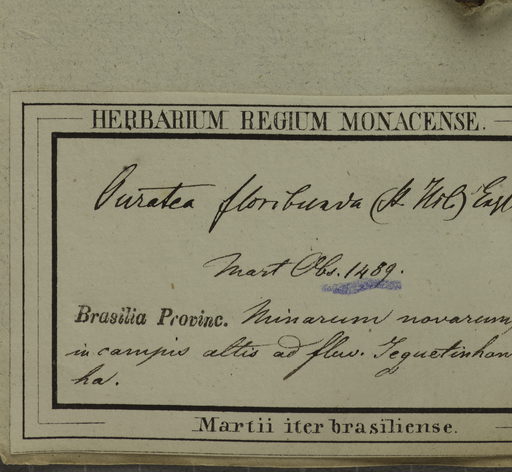 HERBARIUM REGIUM MONACENSE.
Ouratea floribunda (St Hil) Engl
Mart Obs. 1489.
Brasilia Provinc. Minarum novarum,
in campis altis ad fluv. Jequetinhon
ha.
Martii iter brasiliense.